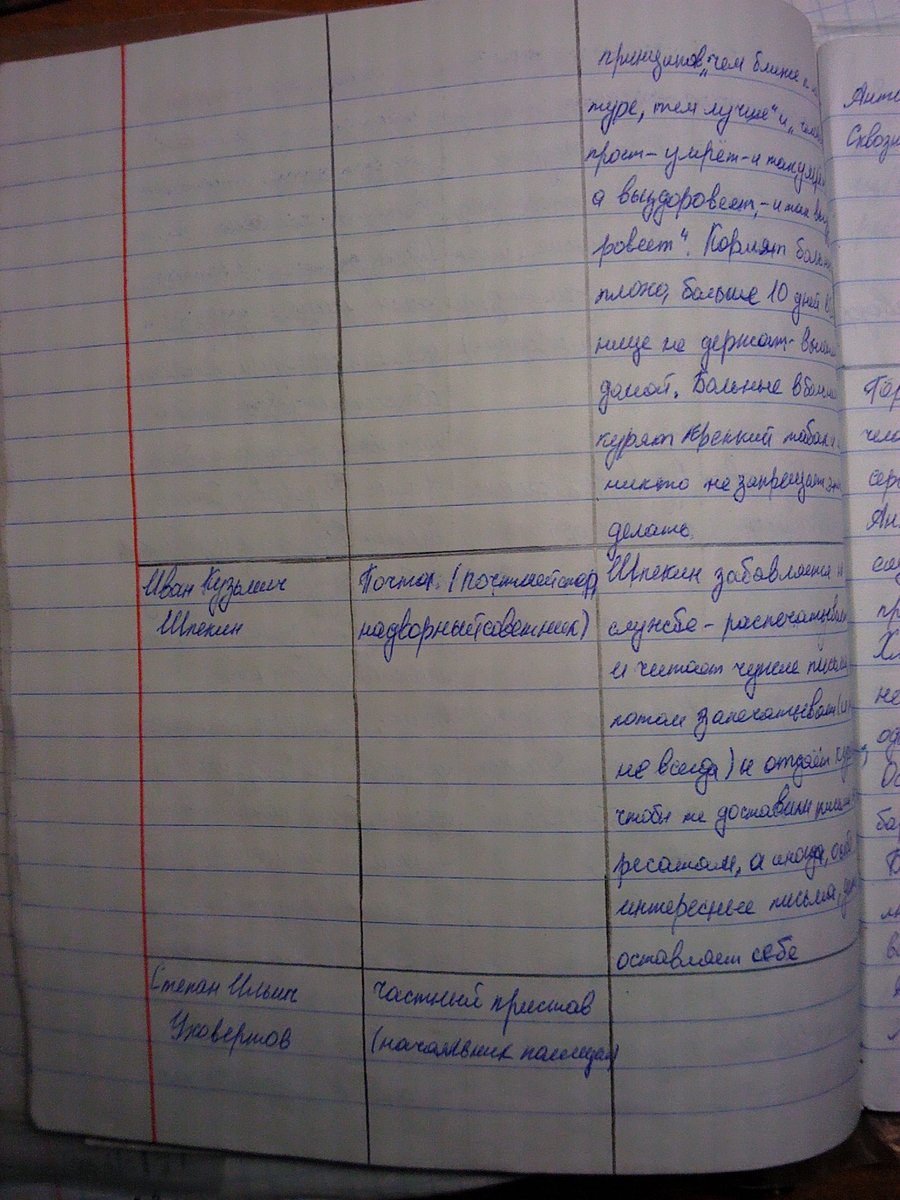 принципов, "чем ближе к
туре, тем лучше" и "
прост-умрёт-и так умрёт
а выздоровеет,-и так выз
ровеет". Кормят боль
плохо, больше 10 дней
нице не держат-
домой. Больные в боль
курят крепкий табак и
никто не запрещает
делать.
Иван Кузьмич
Шпекин
Почта. (почтмейстер,
надворный советник)
Шпекин забавляется на
службе - распечатывает
и читает чужие письма
потом запечатывает (и
не всегда) и отдаёт
чтобы те доставили
ресатам, а иногда,
интересные письма,
оставляет себе
Степан Ильич
Уховертов
частный пристав
(начальник полиции)
Анто
Сквозн
Гор
чело
сер
Ан
пр
Хл
не
од
Ос
ба